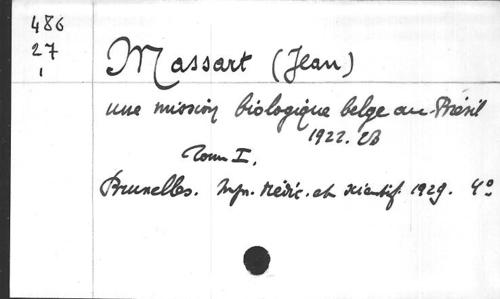 486
27
1
Massart (Jean)
une mission biologique belge au Brésil
1922. 23
Tome I.
Bruxelles. Impr. Médic. et scientif. 1929. 4º